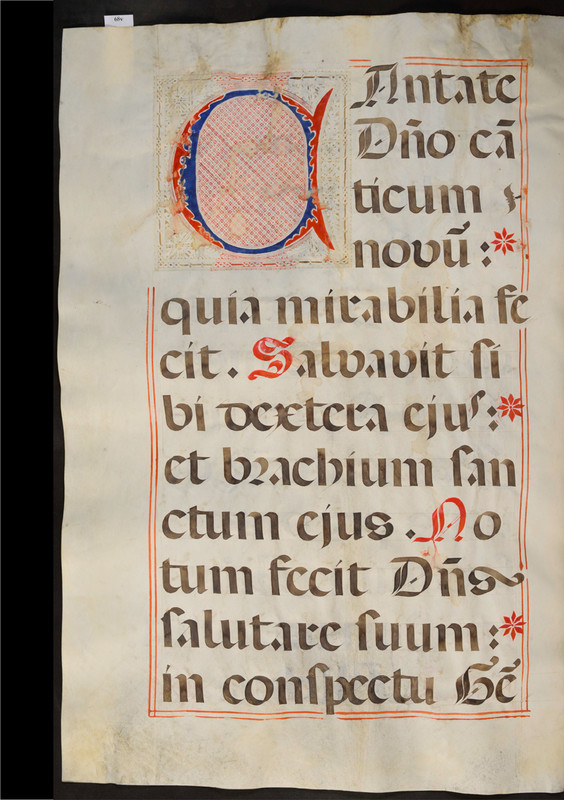 CAntate
Dño cā
ticum
novū : *
quia mirabilia fe
cit . Salvavit ſi
bi dextera ejuſ : *
et brachium ſan
ctum ejus . No
tum fecit Dñs
ſalutare ſuum : *
in conſpectu Gē